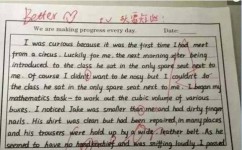 Better
We are making progress every day. Date:
I was curious because it was the first time I had meet
from a circus. Luckily for me, the next morning after being
introduced to the class he sat in the only spare seat next to
me. Of course I didn't want to be nosy but I couldn't to
the class he sat in the only spare seat next to me. I began my
mathematics task - to work out the cubic volume of various
boxes. I noticed Jake was smaller than me and had dirty finger
nails. His shirt was clean but had been repaired in many places
and his trousers were hold up by a wide leather belt. As he
seemed to have no handkerchief and was sniffing loudly, I passed